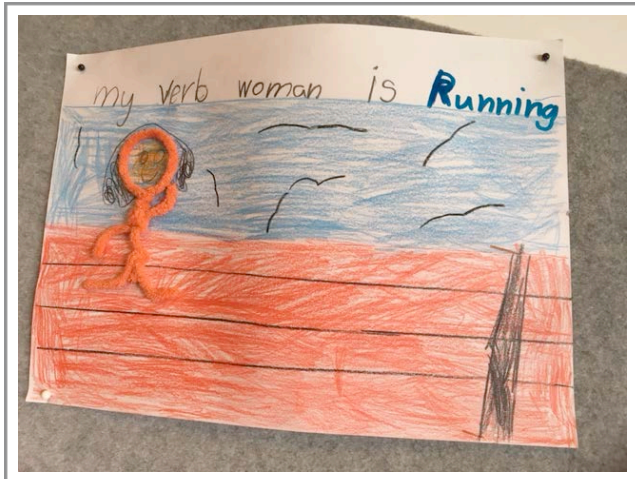 my verb woman is Running